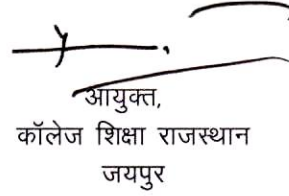 आयुक्त,
कॉलेज शिक्षा राजस्थान
जयपुर